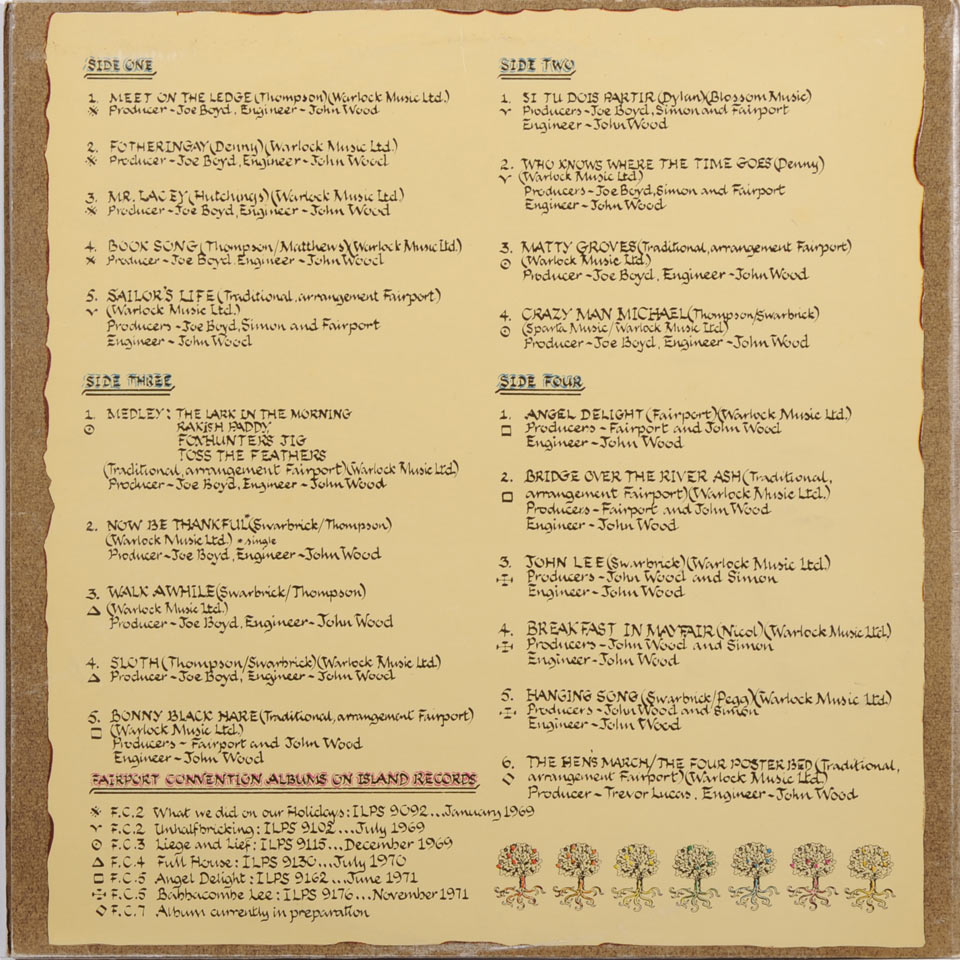 SIDE ONE
1. MEET ON THE LEDGE (Thompson)(Warlock Music Ltd.)
Producer - Joe Boyd, Engineer - John Wood
2. FOTHERINGAY (Denny)(Warlock Music Ltd.)
Producer - Joe Boyd, Engineer - John Wood
3. MR. LACEY (Hutchings)(Warlock Music Ltd.)
Producer - Joe Boyd, Engineer - John Wood
4. BOOK SONG (Thompson/Matthews)(Warlock Music Ltd.)
Producer - Joe Boyd. Engineer - John Wood
5. SAILOR'S LIFE (Traditional, arrangement Fairport)
(Warlock Music Ltd.)
Producers - Joe Boyd, Simon and Fairport
Engineer - John Wood
SIDE TWO
1. SI TU DOIS PARTIR (Dylan)(Blossom Music)
Producers - Joe Boyd, Simon and Fairport
Engineer - John Wood
2. WHO KNOWS WHERE THE TIME GOES (Denny)
(Warlock Music Ltd.)
Producers - Joe Boyd, Simon and Fairport
Engineer - John Wood
3. MATTY GROVES (Traditional, arrangement Fairport)
(Warlock Music Ltd.)
Producer - Joe Boyd, Engineer - John Wood
4. CRAZY MAN MICHAEL (Thompson/Swarbrick)
(Sparta Music/Warlock Music Ltd)
Producer - Joe Boyd, Engineer - John Wood
SIDE THREE
1. MEDLEY: THE LARK IN THE MORNING
RAKISH PADDY
FOXHUNTER'S JIG
TOSS THE FEATHERS
(Traditional, arrangement Fairport)(Warlock Music Ltd.)
Producer - Joe Boyd, Engineer - John Wood
2. NOW BE THANKFUL* (Swarbrick/Thompson)
(Warlock Music Ltd.) * single
Producer - Joe Boyd, Engineer - John Wood
3. WALK AWHILE (Swarbrick/Thompson)
(Warlock Music Ltd.)
Producer - Joe Boyd, Engineer - John Wood
4. SLOTH (Thompson/Swarbrick)(Warlock Music Ltd.)
Producer - Joe Boyd, Engineer - John Wood
5. BONNY BLACK HARE (Traditional, arrangement Fairport)
(Warlock Music Ltd.)
Producers - Fairport and John Wood
Engineer - John Wood
SIDE FOUR
1. ANGEL DELIGHT (Fairport)(Warlock Music Ltd.)
Producers - Fairport and John Wood
Engineer - John Wood
2. BRIDGE OVER THE RIVER ASH (Traditional,
arrangement Fairport)(Warlock Music Ltd.)
Producers - Fairport and John Wood
Engineer - John Wood
3. JOHN LEE (Swarbrick)(Warlock Music Ltd.)
Producers - John Wood and Simon
Engineer - John Wood
4. BREAKFAST IN MAYFAIR (Nicol)(Warlock Music Ltd)
Producers - John Wood and Simon
Engineer - John Wood
5. HANGING SONG (Swarbrick/Pegg)(Warlock Music Ltd)
Producers - John Wood and Simon
Engineer - John Wood
6. THE HEN'S MARCH/THE FOUR POSTER BED (Traditional,
arrangement Fairport)(Warlock Music Ltd.)
Producer - Trevor Lucas, Engineer - John Wood
FAIRPORT CONVENTION ALBUMS ON ISLAND RECORDS
F.C.2 What we did on our Holidays: ILPS 9092...January 1969
F.C.2 Unhalfbricking: ILPS 9102...July 1969
F.C.3 Liege and Lief: ILPS 9115...December 1969
F.C.4 Full House: ILPS 9130...July 1970
F.C.5 Angel Delight: ILPS 9162...June 1971
F.C.5 Babbacombe Lee: ILPS 9176...November 1971
F.C.7 Album currently in preparation